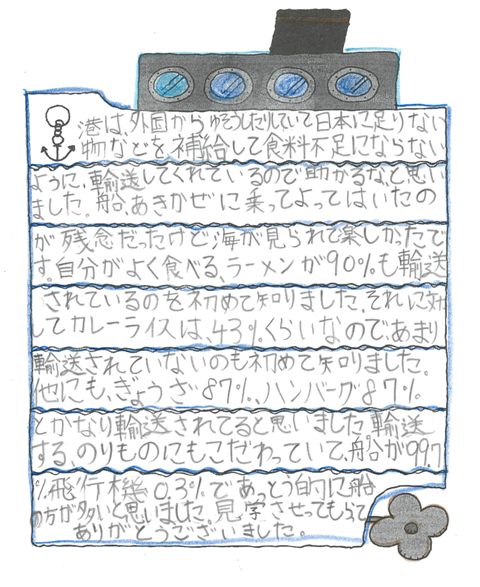 港は、外国からゆそうしたりしていて日本に足りない
物などを補給して食料不足にならない
ように、輸送してくれているので助かるなと思い
ました。船、あきかぜに乗ってよってはいたの
が残念だったけど、海が見られて楽しかったで
す。自分がよく食べる、ラーメンが90%も輸送
されているのを初めて知りました。それに対
してカレーライスは、43%くらいなのであまり
輸送されていないのも初めて知りました。
他にも、ぎょうざ87%、ハンバーグ87%
とかなり輸送されてると思いました。輸送
する、のりものにもこだわっていて、船が99.7
%飛行機0.3%であっとう的に船
の方が多いと思いました。見学させてもらて
ありがとうございました。